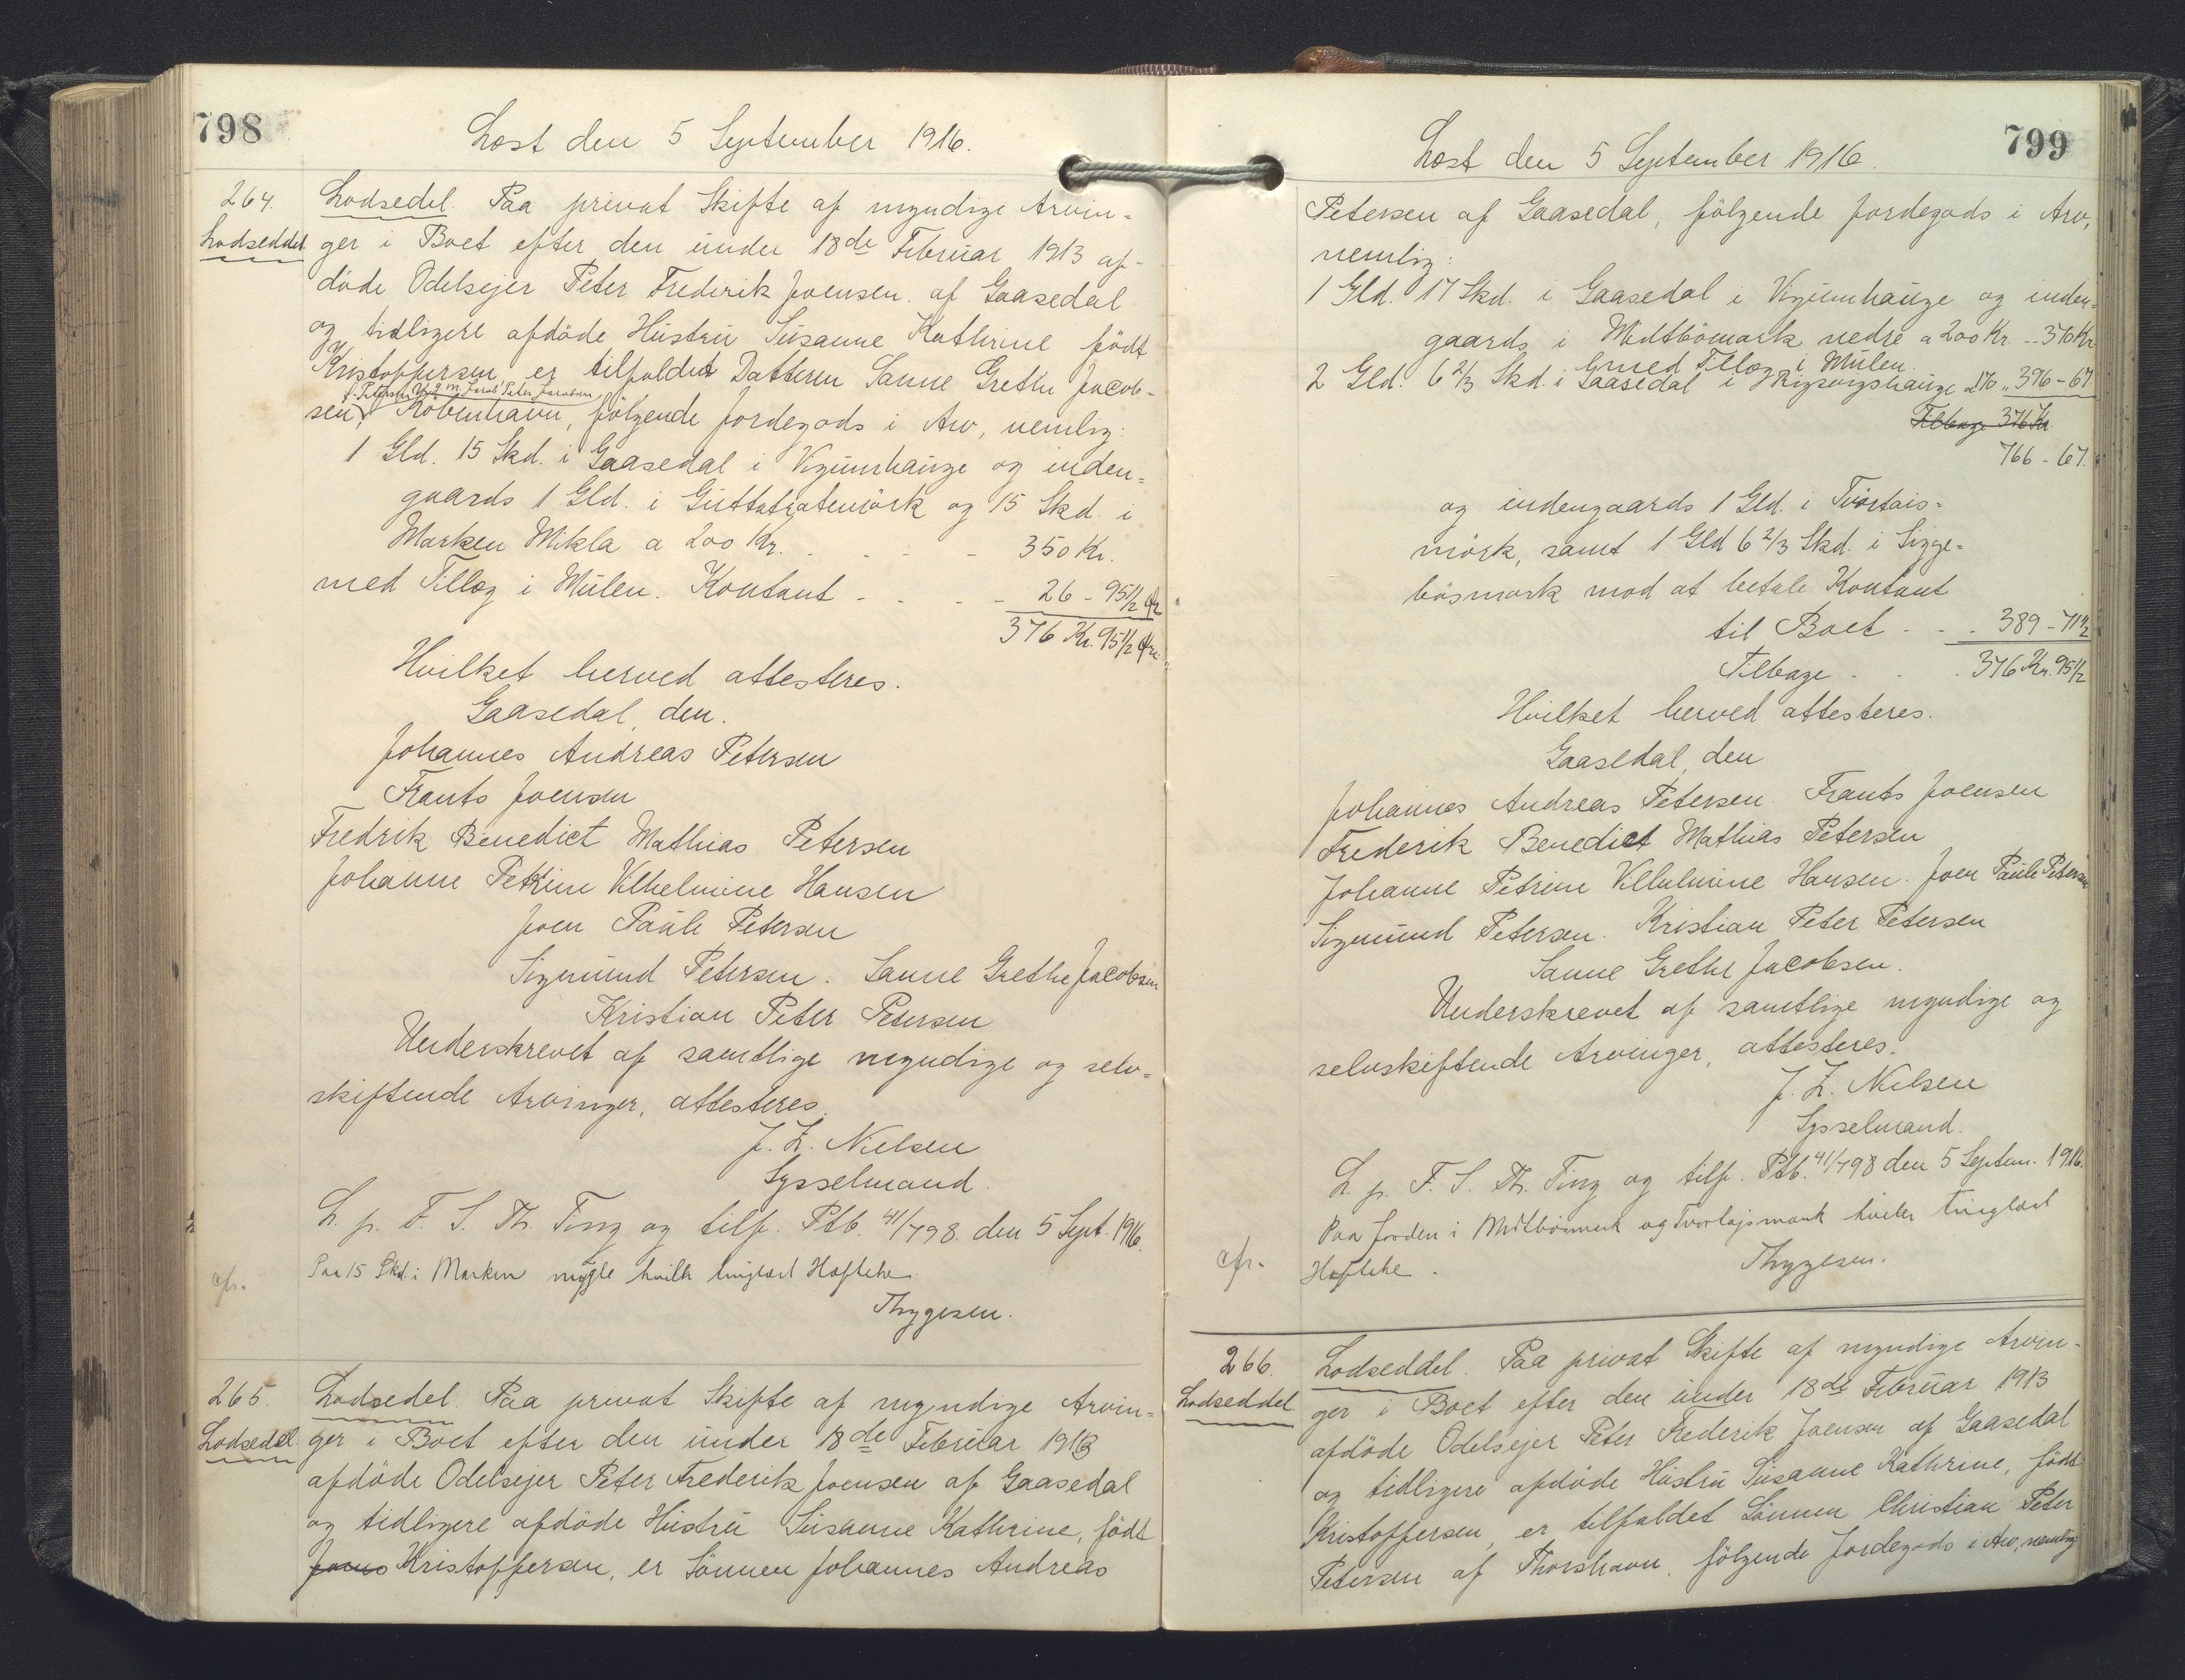 798
Læst den 5 September 1916.
264. Lodsedel. Paa privat Skifte af myndige Arvin-
Lodseddel ger i Boet efter den under 18de Februar 1913 af-
döde Odelsejer Peter Frederik Joensen af Gaasedal
og tidligere afdöde Hustru Susanne Kathrine födt
Kristoffersen er tilfaldet Datteren Sanne Grethe Jacob-
f. Petersen g. m. Jacob Peter Jacobsen
sen, Köbenhavn, fölgende Jordegods i Arv, nemlig:
1 Gld. 15 Skd. i Gaasedal i Vigumhauge og inden-
gaards 1 Gld. i Guttatjatemörk og 15 Skd. i
Marken Mikla a 200 Kr. - - - 350 Kr.
med Tillæg i Mulen. Kontant - - - 26 - 95 1/2 Ør
376 Kr. 95 1/2 Øre
Hvilket herved attesteres.
Gaasedal, den.
Johannes Andreas Petersen
Frants Joensen
Fredrik Benedict Mathias Petersen
Johanne Petrine Vilhelmine Hansen
Joen Paule Petersen
Sigmund Petersen. Sanne Grethe Jacobsen
Kristian Peter Petersen
Underskrevet af samtlige myndige og selv-
skiftende Arvinger, attesteres.
J. Z. Nielsen
Sysselmand.
L. p. F. S. Th. Ting og tilf. Ptb. 41/798. den 5 Sept. 1916.
cfr. Paa 15 Skd. i Marken miggle hviler tinglæst Hæftelse.
Thygesen.
265. Lodsedel. Paa privat Skifte af myndige Arvin-
Lodsedel ger i Boet efter den under 18de Februar 1913
afdöde Odelsejer Peter Frederik Joensen af Gaasedal
og tidligere afdöde Hustru Susanne Kathrine, födt
Joens Kristoffersen, er Sönnen Johannes Andreas
799
Læst den 5 September 1916.
Petersen af Gaasedal, fölgende Jordegods i Arv,
nemlig:
1 Gld. 17 Skd. i Gaasedal i Vigumhauge og inden-
gaards i Midtbömark nedre a 200 Kr. -- 370 Kr
med Tillæg i Mulen.
2 Gld. 6 2/3 Skd. i Gaasedal i Rigsvigshauge a 170 " 396 - 67.
Tilbage 376 Kr
766 - 67.
og indengaards 1 Gld. i Tvörtais-
mörk, samt 1 Gld 6 2/3 Skd. i Sigge-
bösmark mod at betale Kontant
til Boet - - - 389 - 71 1/2
Tilbage - - 376 Kr. 95 1/2
Hvilket herved attesteres.
Gaasedal, den
Johannes Andreas Petersen. Frants Joensen
Frederik Benedict Mathias Petersen
Johanne Petrine Vilhelmine Hansen. Joen Paule Petersen
Sigmund Petersen. Kristian Peter Petersen
Sanne Grethe Jacobsen.
Underskrevet af samtlige myndige og
selvskiftende Arvinger, attesteres.
J. Z. Nielsen
Sysselmand.
L. p. F. S. Th. Ting og tilf. Ptb. 41/798 den 5 Septem. 1916.
Paa Jorden i Midtbömark og Tvortajsmark hviler tinglæst
cfr. Hæftelse. Thygesen.
266. Lodseddel. Paa privat Skifte af myndige Arvin-
Lodseddel ger i Boet efter den under 18de Februar 1913
afdöde Odelsejer Peter Frederik Joensen af Gaasedal
og tidligere afdöde Hustru Susanne Kathrine, födt
Kristoffersen, er tilfaldet Sönnen Christian Peter
Petersen af Thorshavn, fölgende Jordegods i Arv, nemlig